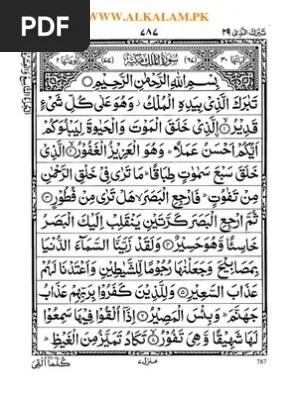 PDF
WWW.ALKALAM.PK
تبرك الذي ٢٩
٧٨٧
سُوْرَةُ الْمُلْكِ مَكِّيَّةٌ
بِسْمِ اللّٰهِ الرَّحْمٰنِ الرَّحِيْمِ
تَبٰرَكَ الَّذِيْ بِيَدِهِ الْمُلْكُ وَهُوَ عَلٰى كُلِّ شَيْءٍ
قَدِيْرُ الَّذِيْ خَلَقَ الْمَوْتَ وَالْحَيٰوةَ لِيَبْلُوَكُمْ
اَيُّكُمْ اَحْسَنُ عَمَلًا وَهُوَ الْعَزِيْزُ الْغَفُوْرُ الَّذِيْ
خَلَقَ سَبْعَ سَمٰوٰتٍ طِبَاقًا مَا تَرٰى فِيْ خَلْقِ الرَّحْمٰنِ
مِنْ تَفٰوُتٍ فَارْجِعِ الْبَصَرَ هَلْ تَرٰى مِنْ فُطُوْرٍ
ثُمَّ ارْجِعِ الْبَصَرَ كَرَّتَيْنِ يَنْقَلِبْ اِلَيْكَ الْبَصَرُ
خَاسِئًا وَّهُوَ حَسِيْرٌ وَلَقَدْ زَيَّنَّا السَّمَآءَ الدُّنْيَا
بِمَصَابِيْحَ وَجَعَلْنٰهَا رُجُوْمًا لِّلشَّيٰطِيْنِ وَاَعْتَدْنَا لَهُمْ
عَذَابَ السَّعِيْرِ وَلِلَّذِيْنَ كَفَرُوْا بِرَبِّهِمْ عَذَابُ
جَهَنَّمَ وَبِئْسَ الْمَصِيْرُ اِذَآ اُلْقُوْا فِيْهَا سَمِعُوْا
لَهَا شَهِيْقًا وَّهِيَ تَفُوْرُ تَكَادُ تَمَيَّزُ مِنَ الْغَيْظِ
كُلَّمَآ اُلْقِيَ
منزل ٧
787